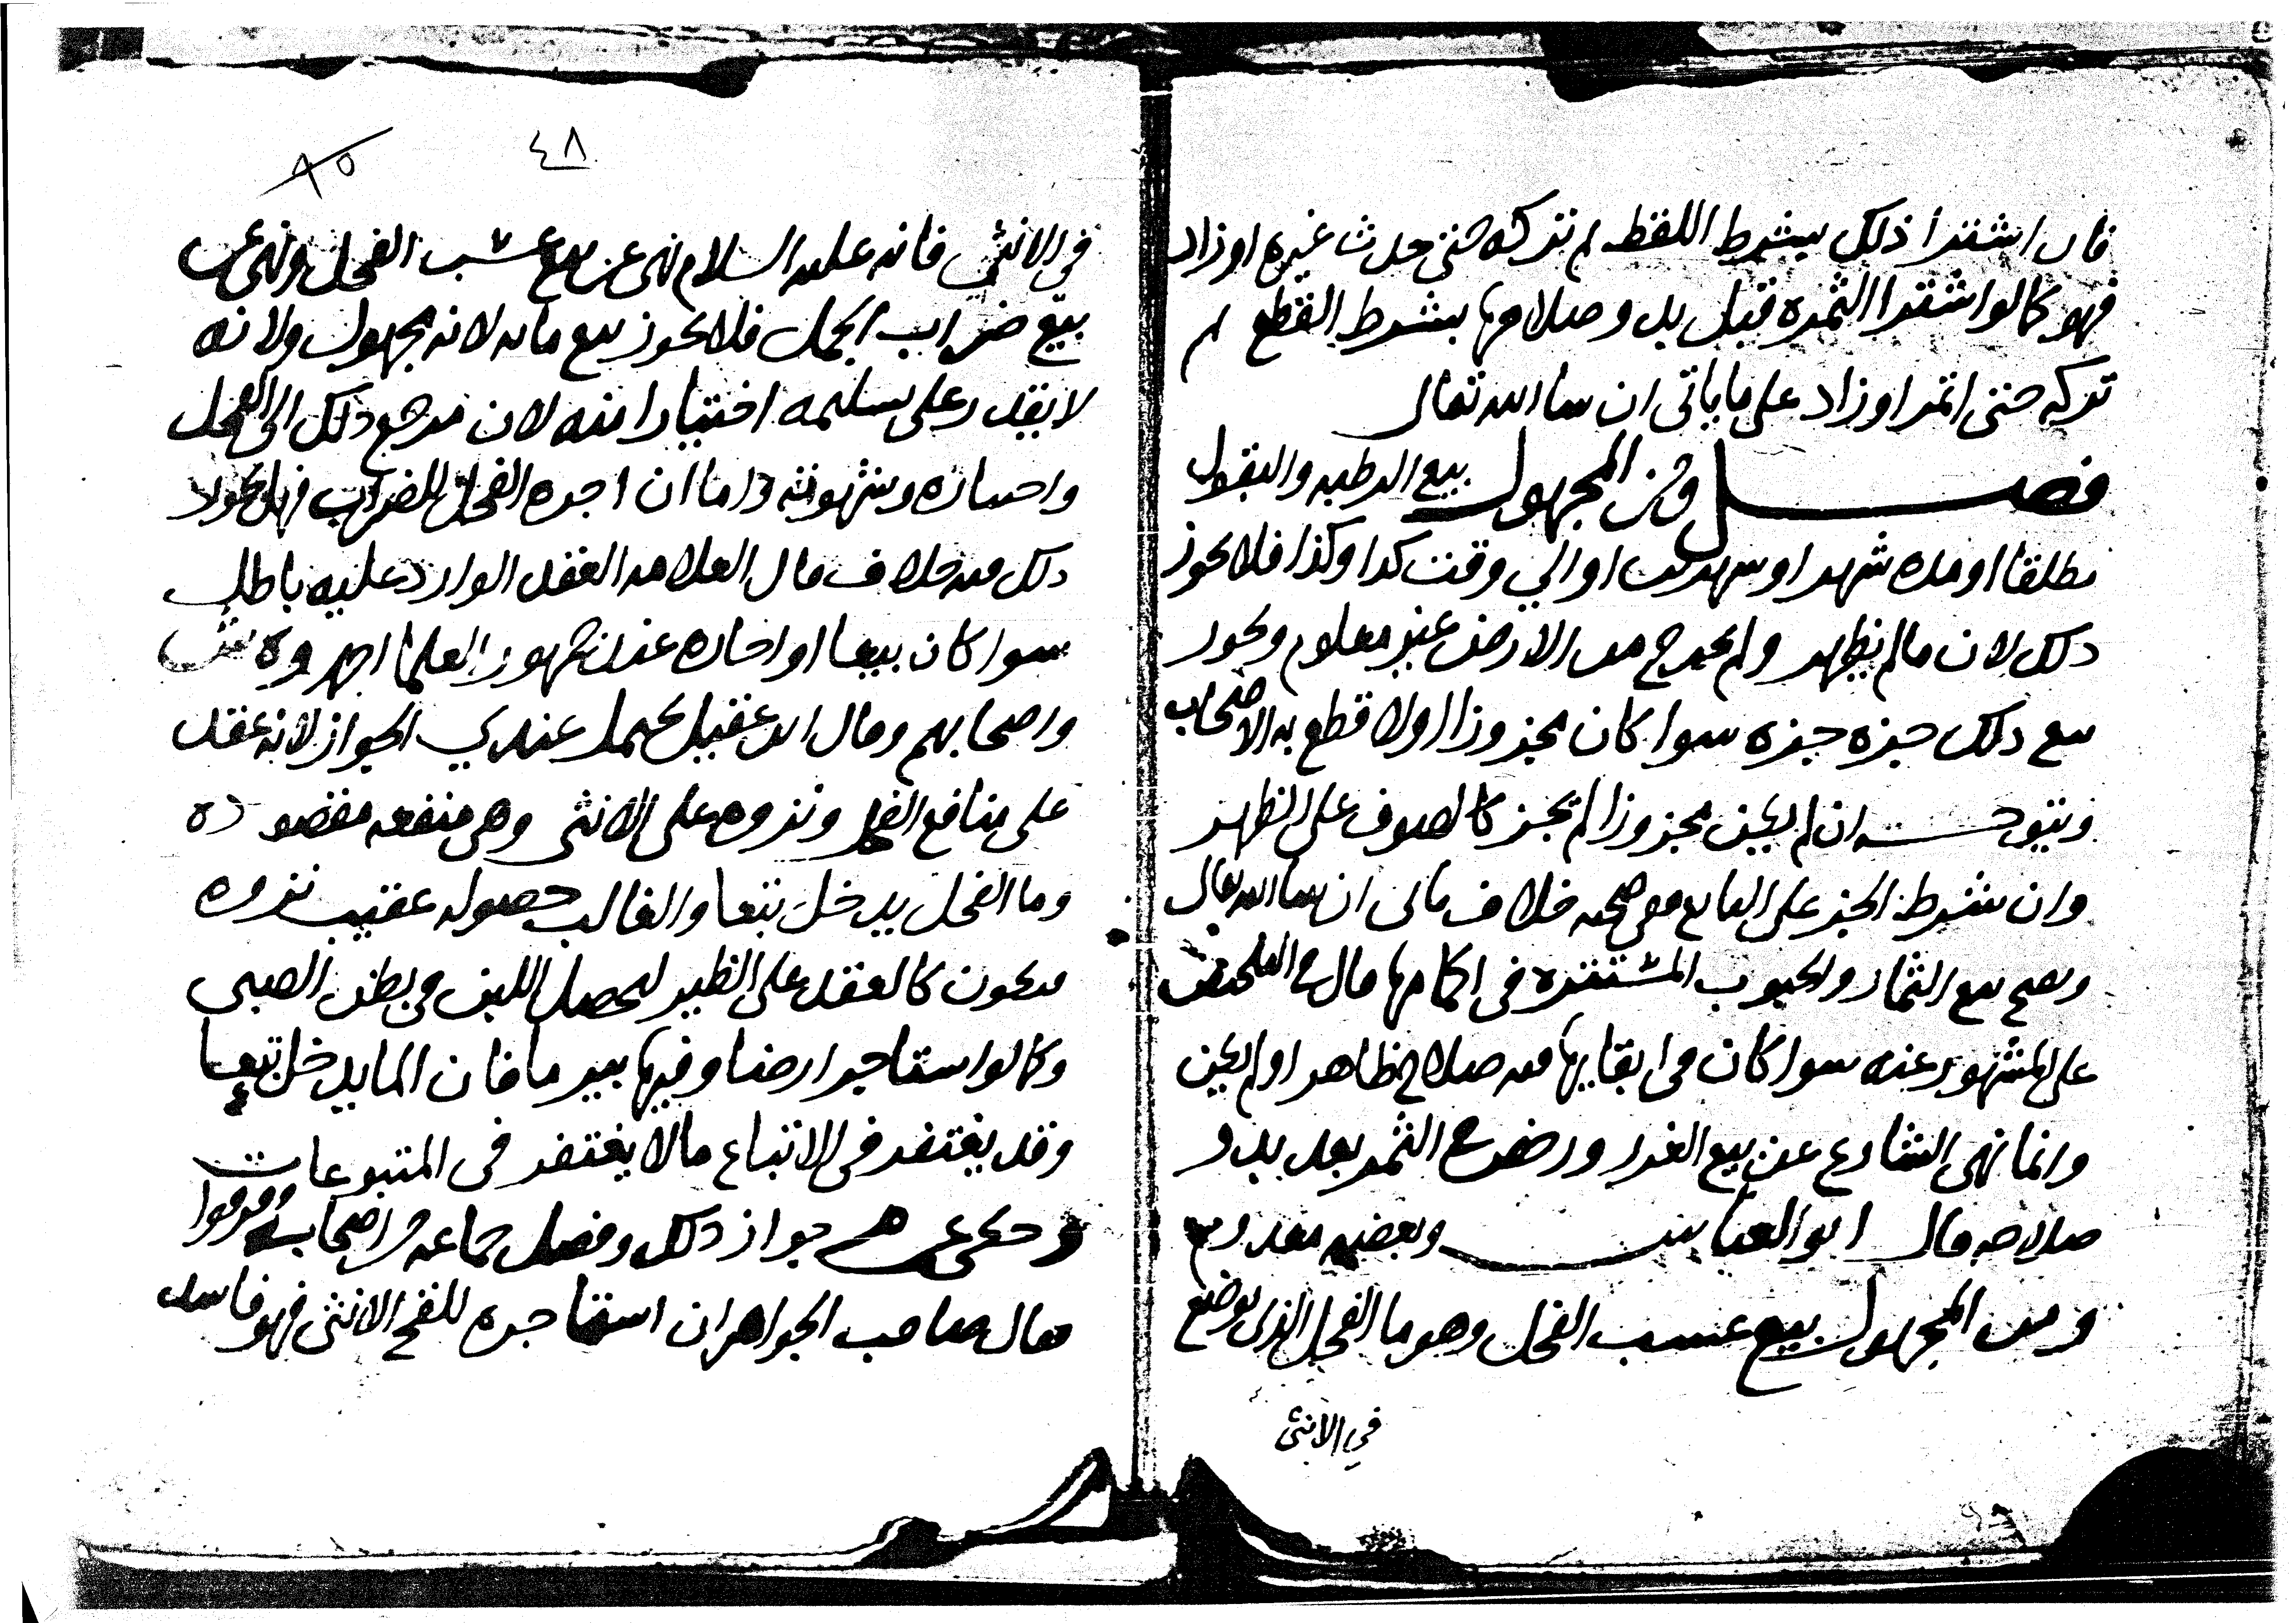 فان اشترا ذلك بشرط اللقط ثم تركه حتى حدث غيره او زاد
فهو كما لو اشترا الثمره قبل بدو صلاحها بشرط القطع ثم
تركه حتى اتمر او زاد على ما ياتى ان شا الله تعالى
فصل ومن المجهول بيع الرطبه والبقول
مطلقا او مده شهر او شهرين او الي وقت كدا وكذا فلا يجوز
ذلك لان مالم يظهر ولم يخرج من الارض غير معلوم ويجوز
بيع ذلك جزه جزه سوا كان مجزوزا اولا قطع به الاصحاب
ويتوجه ان لم يكن مجزوزا لم يجز كالصوف على الظهر
وان شرط الجز على البايع ففي صحته خلاف ياتى ان شا الله تعالى
ويصح بيع الثمار والحبوب المستتره فى اكمامها قال في الملخص
على المشهور عنه سوا كان فى ابقايها فيه صلاح ظاهر او لم يكن
وانما نهى الشارع عن بيع الغرر ورخص في الثمر بعد بدو
صلاحه قال ابو العباس وبعضه معدوم
ومن المجهول بيع عسب الفحل وهو ما الفحل الذى يوضع
في الانثى
٤٨
٨٥
فى الانثى فانه عليه السلام نهى عن بيع عسب الفحل ونهى عن
بيع ضراب الجمل فلا يجوز بيع مايه لانه مجهول ولانه
لا يقدر على تسليمه اختيارا منه لان مرجع ذلك الى الفحل
واختياره وشهوته واما ان اجره الفحل للضراب فهل يجوز لا
ذلك فيه خلاف قال العلامه العقد الوارد عليه باطل
سوا كان بيعا او اجاره عند جمهور العلما احمد وه ش
واصحابهم وقال ابن عقيل يحتمل عندي الجواز لانه عقد
على منافع الفحل ونزوه على الانثى وهى منفعه مقصوده
وما الفحل يدخل تبعا والغالب حصوله عقيب نزوه
فيكون كالعقد على الظير ليحصل اللبن فى بطن الصبى
وكما لو استاجر ارضا وفيها بير ما فان الما يدخل تبعا
وقد يغتفر فى الاتباع مالا يغتفر فى المتبوعات
وحكى عن جواز ذلك وفصل جماعه من اصحاب وفرقوا
فقال صاحب الجواهر ان استاجره للقح الانثى فهو فاسد